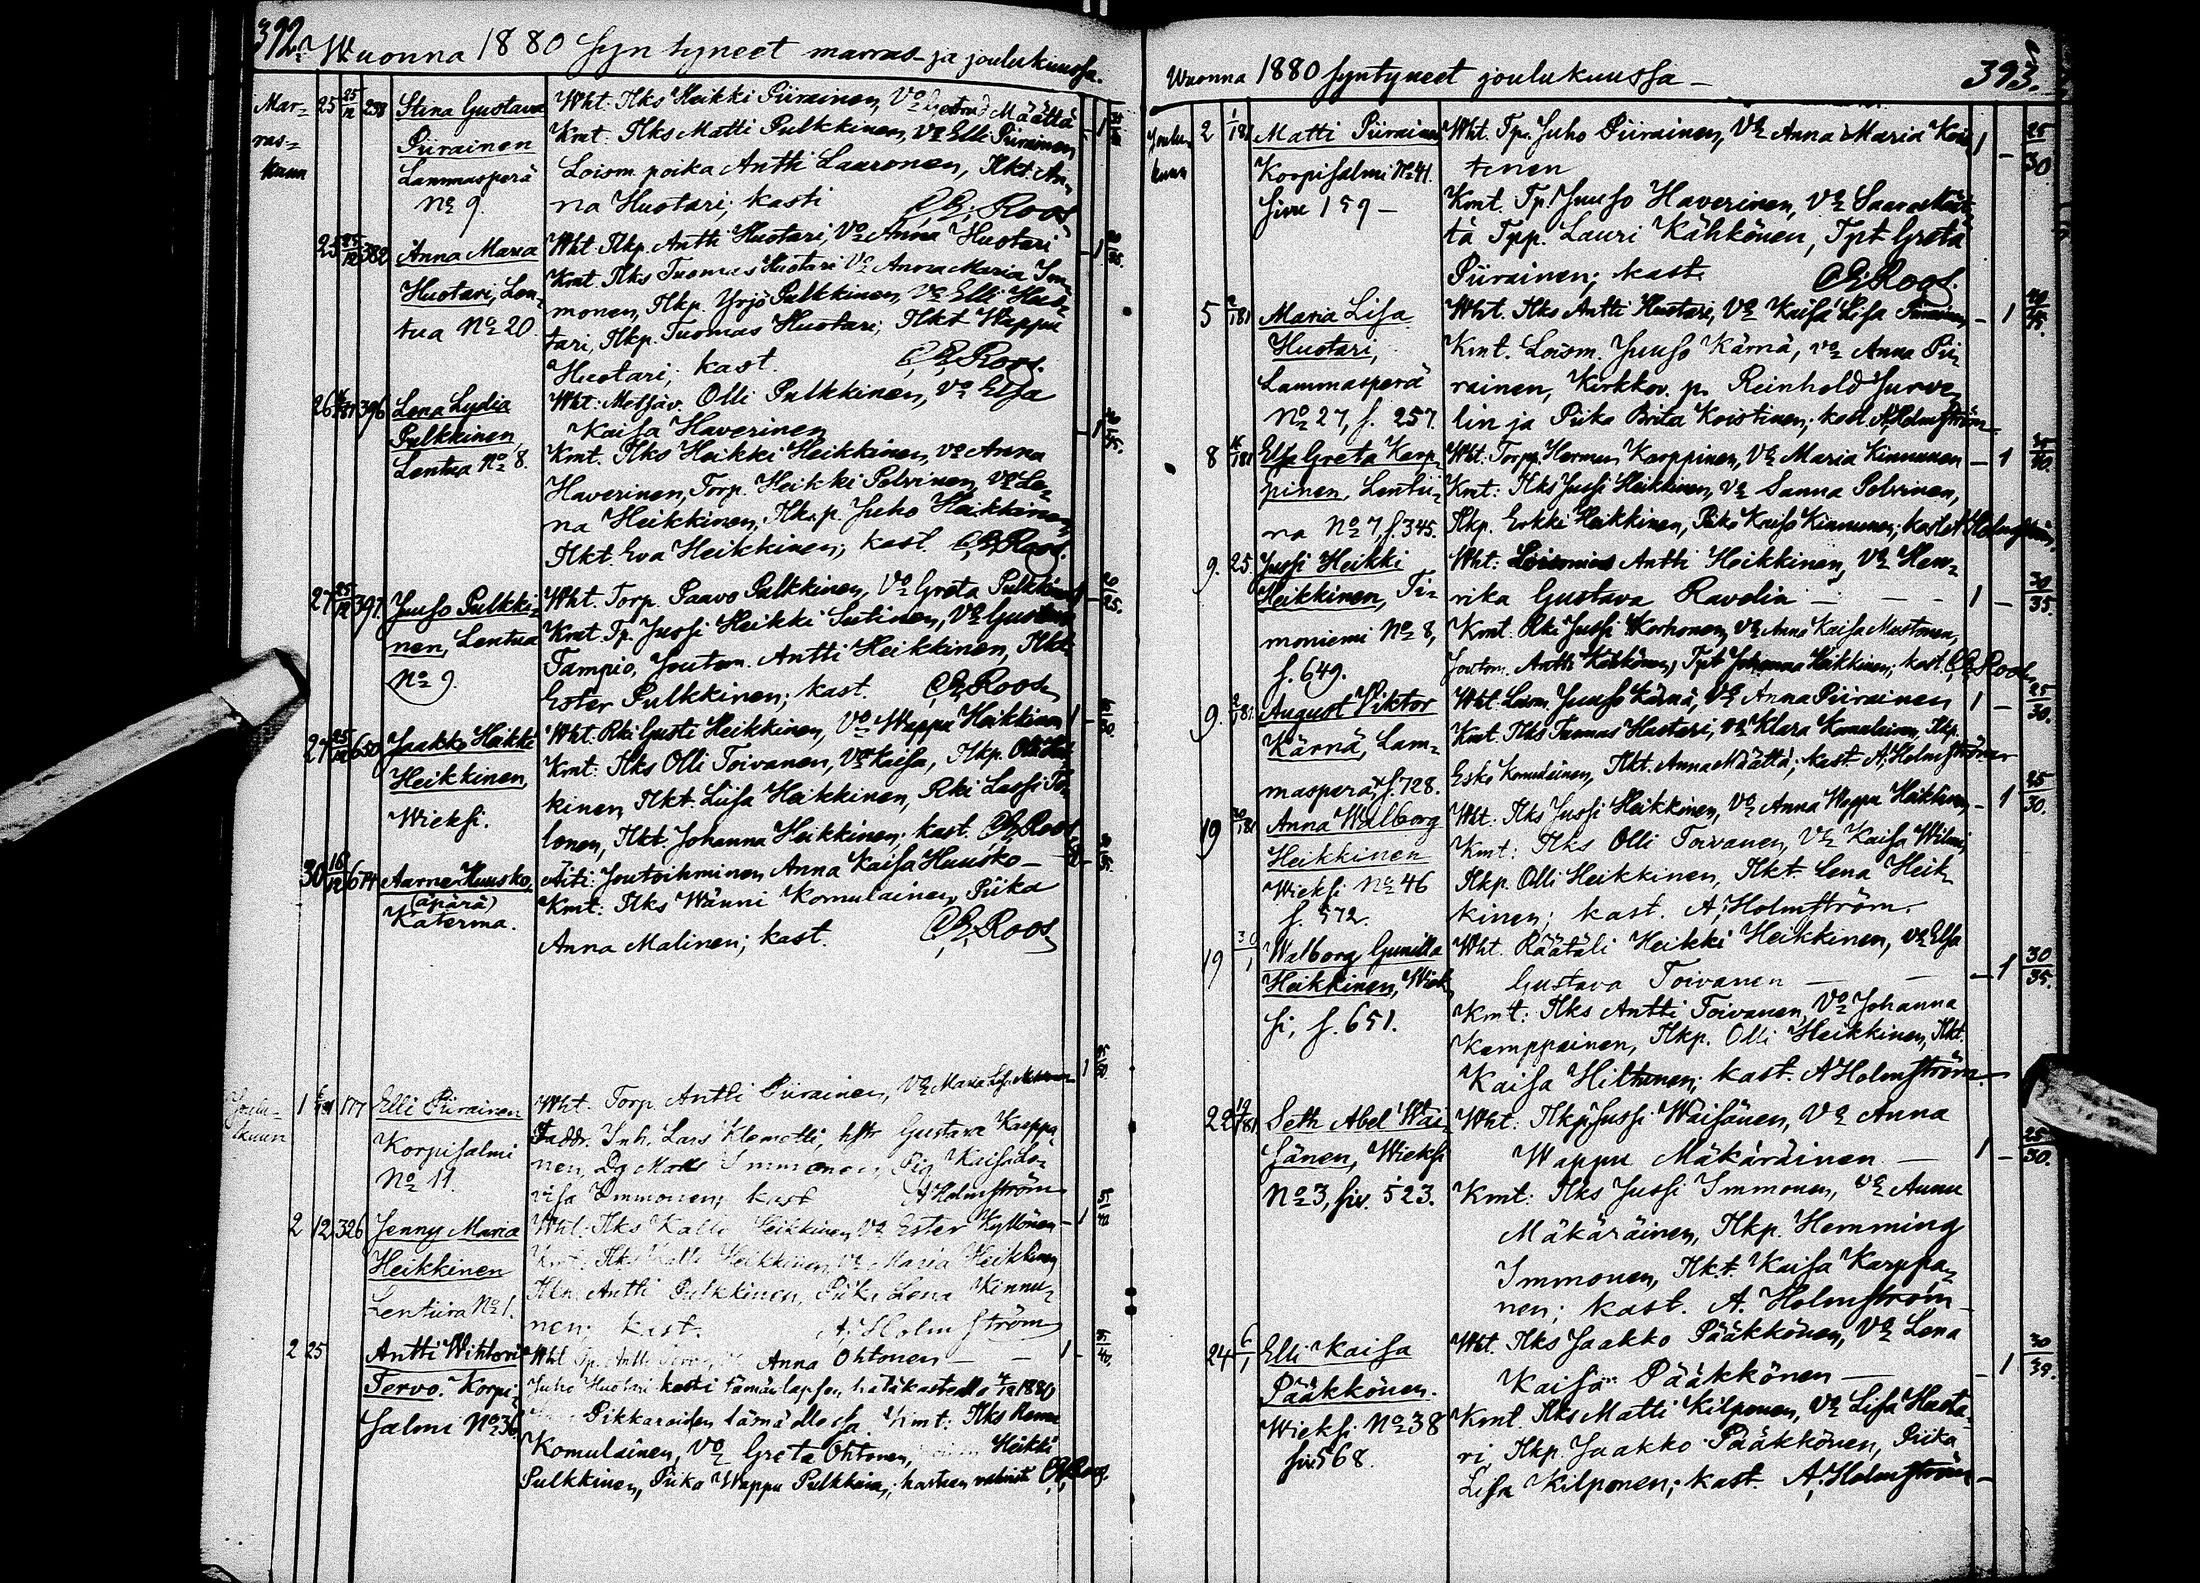 392. Wuonna 1880 syntyneet marras- ja joulukuussa.
Mar-
ras-
kuun
25 25/12 238 Stina Gustava
Piirainen
Lammasperä
No 9.
Wht: Ilks Heikki Piirainen, Vo Määttä
Kmt: Ilks Matti Pulkkinen, Vo Elli Piirainen
Loism. poika Antti Laaronen, Ilkt. An-
na Huotari; kasti C.E. Roos
25 25/12 382 Anna Maria
Huotari, Len-
tua No 20.
Wht. Ilkp. Antti Huotari, Vo Anna Huotari
Kmt. Ilks Tuomas Huotari Vo Anna Maria Im-
monen, Ilkp. Yrjö Pulkkinen, Vo Elli Huo-
tari, Ilkp. Tuomas Huotari, Ilkt Wappu
Huotari; kast. C.E. Roos.
26 396 Lena Lydia
Pulkkinen,
Lentua No 8.
Wht: Metsäv. Olli Pulkkinen, Vo Elsa
Kaisa Haverinen
Kmt. Ilks Heikki Heikkinen, Vo Anna
Haverinen, Torp. Heikki Polvinen, Vo Le-
na Heikkinen, Ilks.p. Juho Heikkinen,
Ilkt. Eva Heikkinen; kast. C.E. Roos.
27 25/12 397 Juuso Pulkki-
nen, Lentua
No 9.
Wht. Torp. Paavo Pulkkinen, Vo Greta Pulkkinen
Kmt. Tp. Jussi Heikki Sutinen, Vo Gustava
Tampio, Joutom. Antti Heikkinen, Ilkt.
Ester Pulkkinen; kast. C.E. Roos
27 25/12 650 Jaakko Heikki
Heikkinen,
Wieksi.
Wht. Rki Gusti Heikkinen, Vo Wappu Heikkinen
Kmt: Ilks Olli Toivanen, Vo Kaisa, Ilkp. Olli Heik-
kinen, Ilkt. Liisa Heikkinen, Rki Lassi To-
lonen, Ilkt. Johanna Heikkinen; kast. C.E. Roos
30 16/12 674 Aarne Huusko,
(äpärä)
Katerma.
Äiti: Joutoihminen Anna Kaisa Huusko -
Kmt: Ilks Wänni Komulainen, Piika
Anna Malinen; kast. C.E. Roos
Joulu-
kuun
1 177 Elli Piirainen
Korpisalmi
No 11.
Wht. Torp. Antti Piirainen, Vo Maria
Faddr. Inh. Lars Klemetti, hstr Gustava Karppi-
nen, Dg Mats Immonen, Pig. Kaisa Lo-
visa Immonen; kast A Holmström
2 12 326 Jenny Maria
Heikkinen
Lentiira No 1.
Wht. Ilks Kalle Heikkinen, Vo Ester Kyllönen
Kmt: Ilks Kalle Heikkinen, Vo Maria Heikkinen
Antti Pulkkinen, Piika Lena Kinnu-
nen; kast. A. Holmström
2 25 Antti Wihtori
Tervo. Korpi-
salmi No 36
Wht Tp. Antti Tervo, Vo Anna Ohtonen
Juho Huotari kasti tämän lapsen hätäkasteella 4/12 1880
Pikkaraisten läsnä ollessa. Kmt: Ilks
Komulainen, Vo Greta Ohtonen, Heikki
Pulkkinen, Piika Wappu Pulkkinen; kasteen vahvisti C.E. Roos.
Wuonna 1880 syntyneet joulukuussa - 393.
Joulu-
kuun
2 1/1 81 Matti Piirainen
Korpisalmi No 41.
sivu 159 -
Wht. Tp. Juho Piirainen, Vo Anna Maria Kois-
tinen
Kmt. Tp. Juuso Haverinen, Vo Saara Määt-
tä Tpp. Lauri Kähkönen, Tpt Greta
Piirainen; kast. C.E. Roos.
1 - 25/30
5 Maria Lisa
Huotari,
Lammasperä
No 27, s. 257.
Wht. Ilks Antti Huotari, Vo Kaisa Lisa Piirainen
Kmt. Loism. Juuso Kärnä, Vo Anna Pii-
rainen, Kirkkov. p. Reinhold Jurve-
lin ja Piika Brita Koistinen; kast. A. Holmström
8 Elsa Greta Karp-
pinen, Lentii-
ra No 7, s. 345.
Wht: Torpp. Herman Karppinen, Vo Maria Kinnunen
Kmt: Ilks Jussi Heikkinen, Vo Sanna Polvinen,
Ilkp. Erkki Heikkinen, Piika Kaisa Kinnunen; kast A Holmström
9. 25 Jussi Heikki
Heikkinen, Ti-
moniemi No 8,
s. 649.
Wht: Loismies Antti Heikkinen, Vo Hen-
rika Gustava Ravelin
1 - 30/35.
Kmt. Rki Jussi Korhonen, Vo Anna Kaisa Mustonen,
Joutom. Antti Kähkönen, Tpt Johanna Heikkinen; kast. C.E. Roos
9. August Viktor
Kärnä, Lam-
masperä, s. 728.
Wht. Loism. Juuso Kärnä, Vo Anna Piirainen
1 - 25/30.
Kmt. Ilks Tuomas Huotari, Vo Klara Komulainen, Ilkp.
Esko Komulainen, Ilkt. Anna Määttä; kast A. Holmström
19 Anna Walborg
Heikkinen
Wieksi No 46
s. 572.
Wht: Ilks Jussi Heikkinen, Vo Anna Wappu Heikkinen
- 1 25/30.
Kmt: Ilks Olli Toivanen, Vo Kaisa Wilmi,
Ilkp. Olli Heikkinen, Ilkt. Lena Heik-
kinen; kast. A. Holmström.
19 30/1 Walborg Gunilla
Heikkinen, Wiek-
si, s. 651.
Wht. Räätäli Heikki Heikkinen, Vo Elsa
Gustava Toivanen
- 1 30/35.
Kmt: Ilks Antti Toivanen, Vo Johanna
Kemppainen, Ilkp. Olli Heikkinen, Ilkt.
Kaisa Hiltunen; kast. A Holmström
22 Seth Abel Wäi-
sänen, Wieksi
No 3, siv. 523.
Wht: Ilkp. Jussi Wäisänen, Vo Anna
Wappu Mäkäräinen
1 - 25/30.
Kmt: Ilks Jussi Immonen, Vo Anna
Mäkäräinen, Ilkp. Hemming
Immonen, Ilkt. Kaisa Karppi-
nen; kast. A. Holmström
24 6/1 Elli Kaisa
Pääkkönen.
Wieksi No 38
siv. 568.
Wht. Ilks Jaakko Pääkkönen, Vo Lena
Kaisa Pääkkönen
- 1
Kmt. Ilks Matti Kilponen, Vo Lisa Huota-
ri, Ilkp. Jaakko Pääkkönen, Piika
Lisa Kilponen; kast. A. Holmström